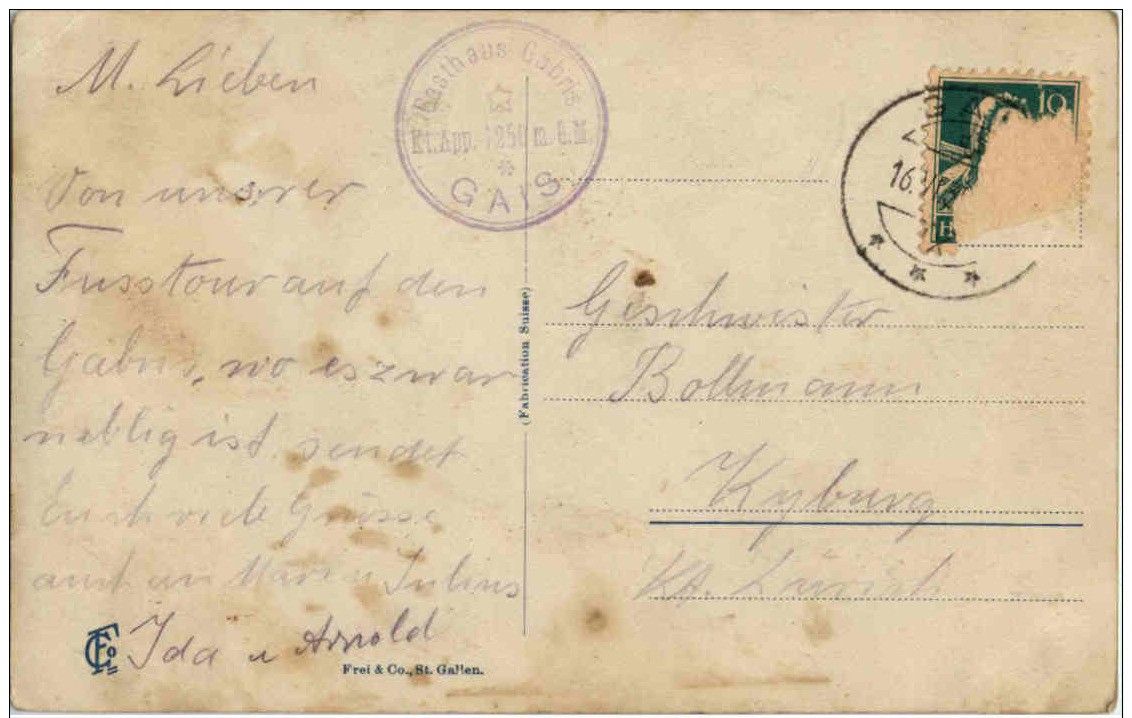 M. Lieben
Von unserer
Fusstour auf den
Gäbris, wo es zwar
neblig ist sendet
Euch viele Grüsse
auch an Marie u Julius
Ida u Arnold
Frei & Co., St. Gallen.
(Fabrication Suisse)
Gasthaus Gäbris
Kt. App. 1250 m. ü. M.
*
GAIS
10
H
16.
* * *
Geschwister
Bollmann
Kyburg
Kt. Zürich